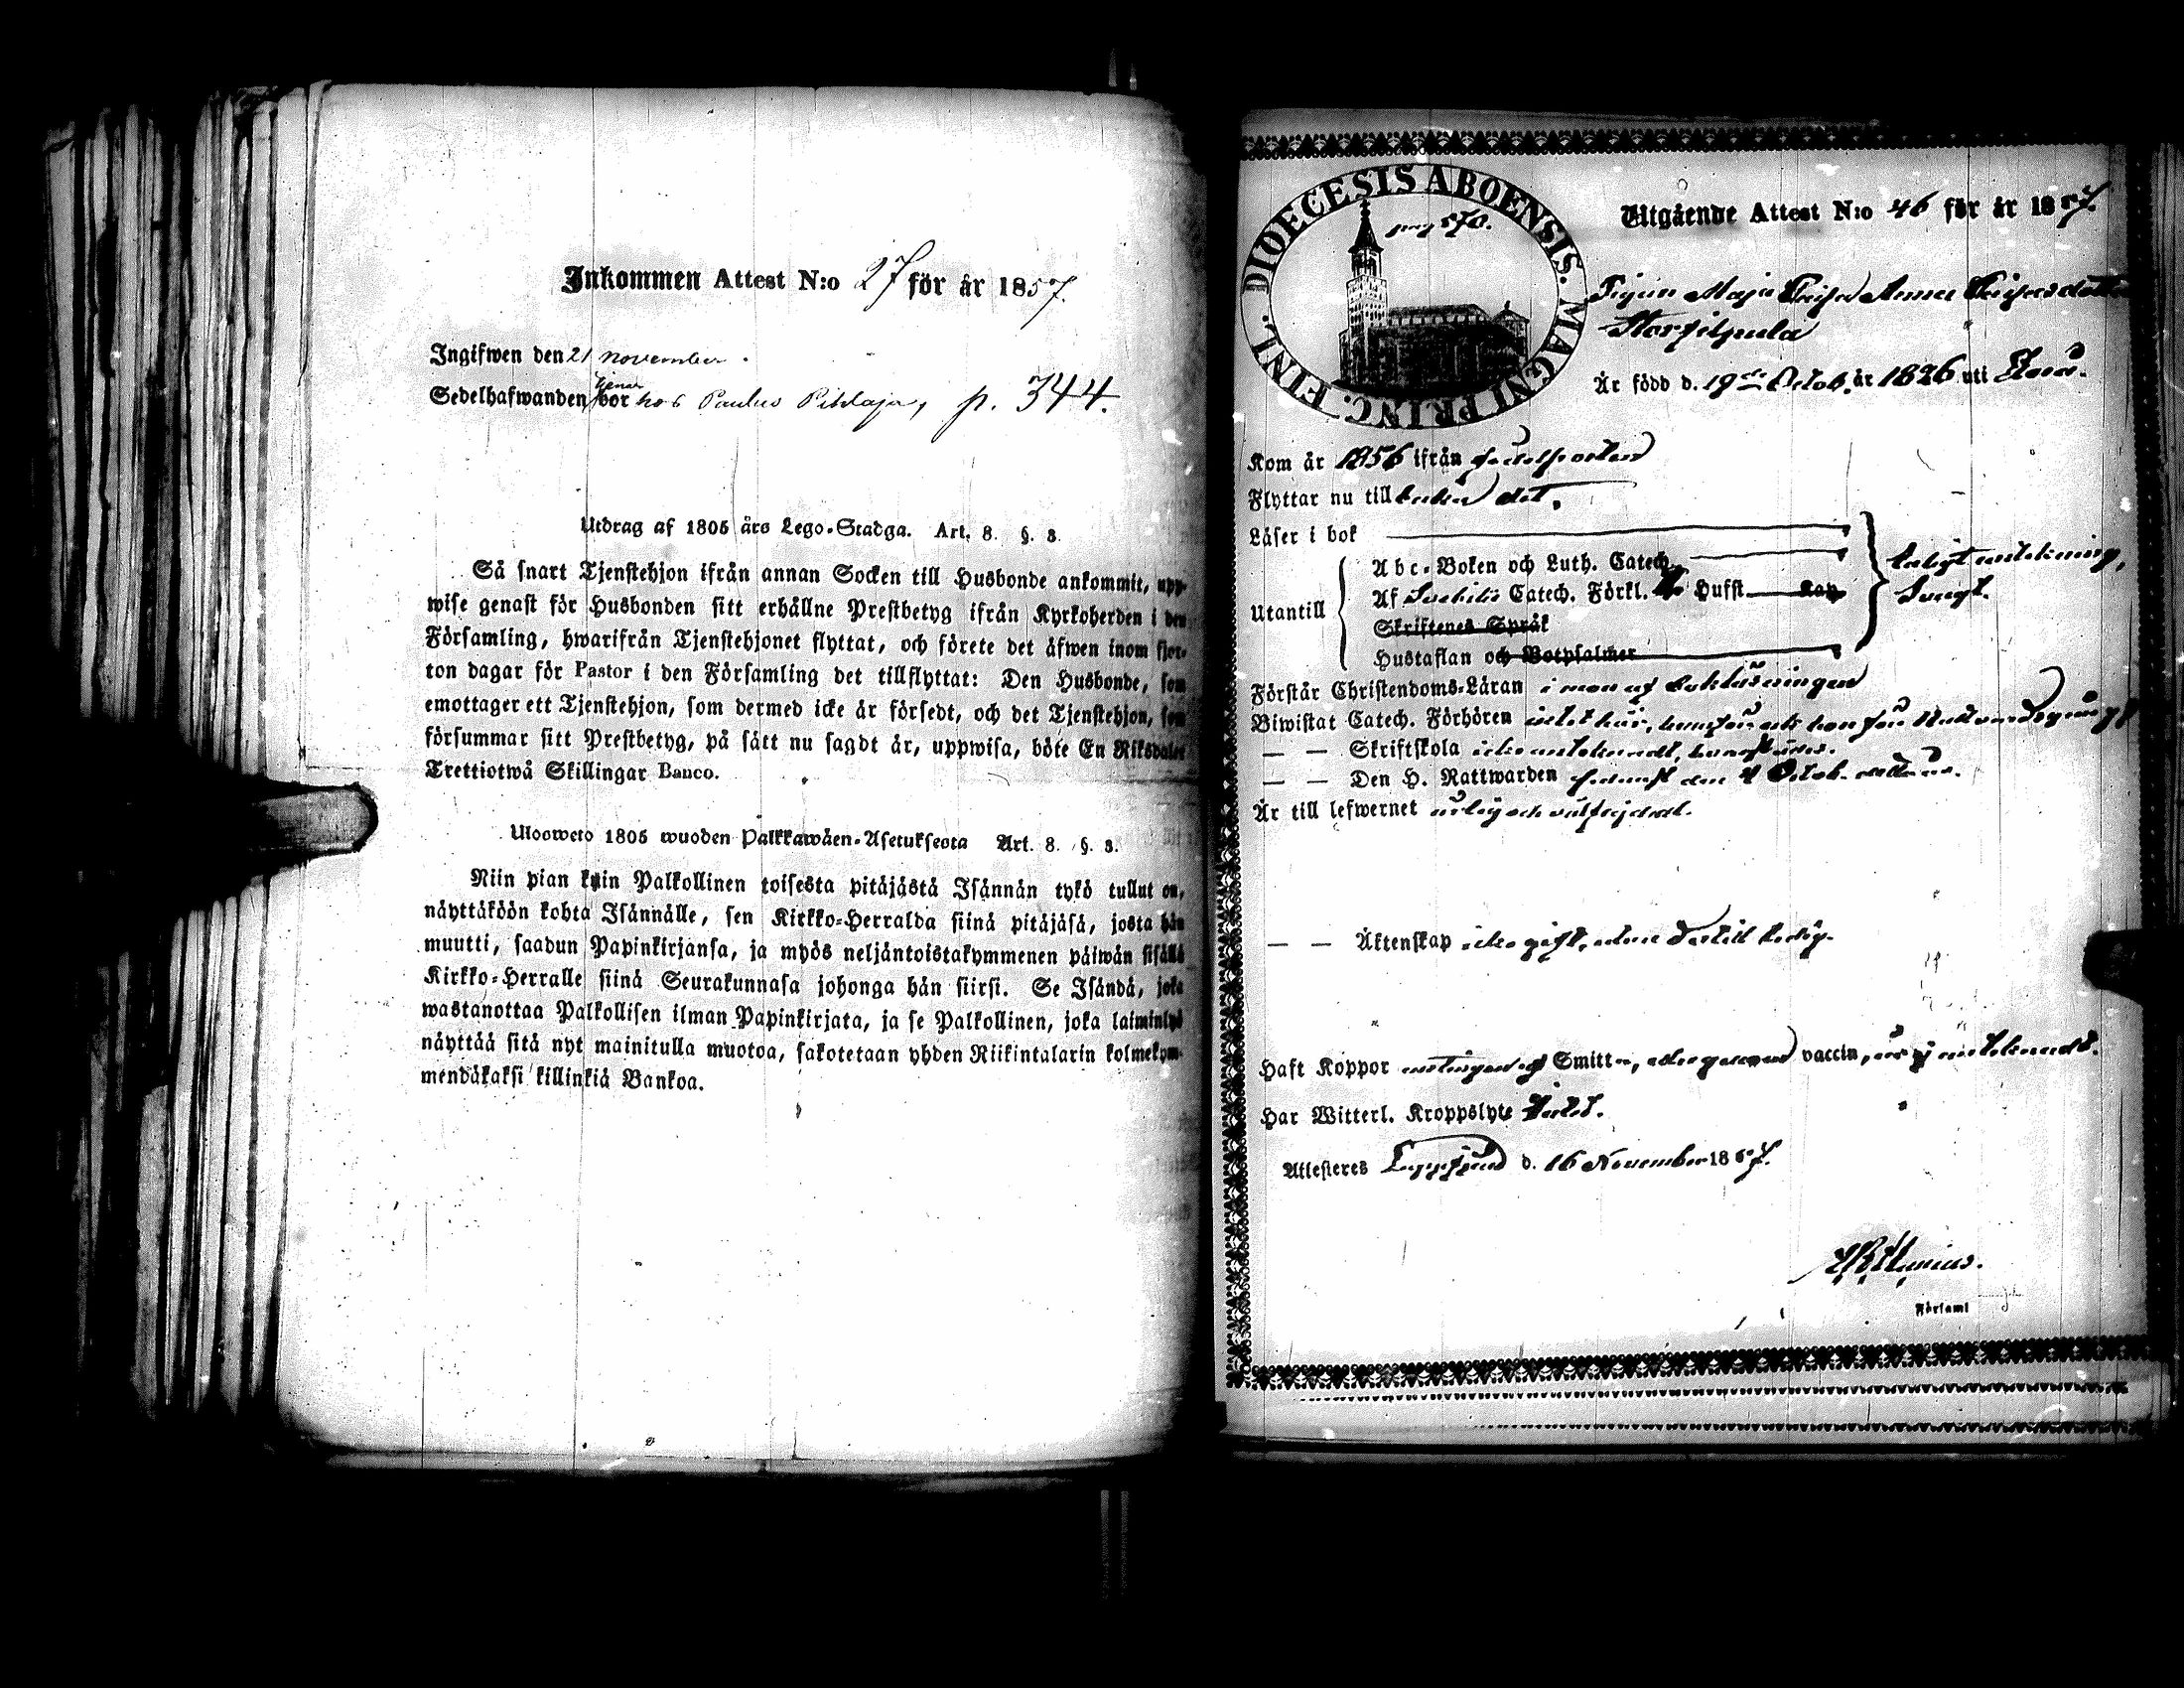 Inkommen Attest N:o 27 för år 1857.
Ingifwen den 21 november.
tjenar
Sedelhafwanden bor hos Paulus Pihlaja, p. 344.
Utdrag af 1805 års Lego-Stadga. Art. 8. §. 3.
Så snart Tjenstehjon ifrån annan Socken till Husbonde ankommit, upp-
wise genast för Husbonden sitt erhållne Prestbetyg ifrån Kyrkoherden i den
Församling, hwarifrån Tjenstehjonet flyttat, och förete det äfwen inom fjor-
ton dagar för Pastor i den Församling det tillflyttat: Den Husbonde, som
emottager ett Tjenstehjon, som dermed icke är försedt, och det Tjenstehjon, som
försummar sitt Prestbetyg, på sätt nu sagdt är, uppwisa, böte En Riksdaler
Trettiotwå Skillingar Banco.
Ulosweto 1805 wuoden Palkkawäen-Asetuksesta Art. 8. §. 3.
Niin pian kuin Palkollinen toisesta pitäjästä Isännän tykö tullut on,
näyttäköön kohta Isännälle, sen Kirkko-Herralda siinä pitäjäsä, josta hän
muutti, saadun Papinkirjansa, ja myös neljäntoistakymmenen päiwän sisällä
Kirkko-Herralle siinä Seurakunnasa johonga hän siirsi. Se Isändä, joka
wastanottaa Palkollisen ilman Papinkirjata, ja se Palkollinen, joka laiminlyö
näyttää sitä nyt mainitulla muotoa, sakotetaan yhden Riikintalarin kolmekym-
mendäkaksi killinkiä Bankoa.
DIOECESIS ABOENSIS. MAGNI PRINC. FINL.
pag 570.
Utgående Attest N:o 46 för år 1857.
Pigan Maja Caisa Anna Caisasdotter
Storfilpula
Är född d. 19de Octob. år 1826 uti
Kom år 1856 ifrån födelseorten
Flyttar nu till det.
Läser i bok
Utantill
Abc-Boken och Luth. Catech.
Af Svebilii Catech. Förkl. Hufst. Kap
Skriftenes Språk
Hustaflan och Botpsalmer
enligt anteckning,
Svagt.
Förstår Christendoms-Läran i mon af bokläsningen
Biwistat Catech. Förhören
— — Skriftskola icke antecknadt,
— — Den H. Nattwarden senast den 4 Octob. detta år.
Är till lefwernet ärlig och välfrejdad.
— — Äktenskap icke gift, utan dertill ledig.
Haft Koppor antingen af Smitta, eller genom vaccin, är ej antecknadt.
Har Witterl. Kroppslyte Intet.
Attesteres Lappfjerd d. 16 November 1857.
Församl